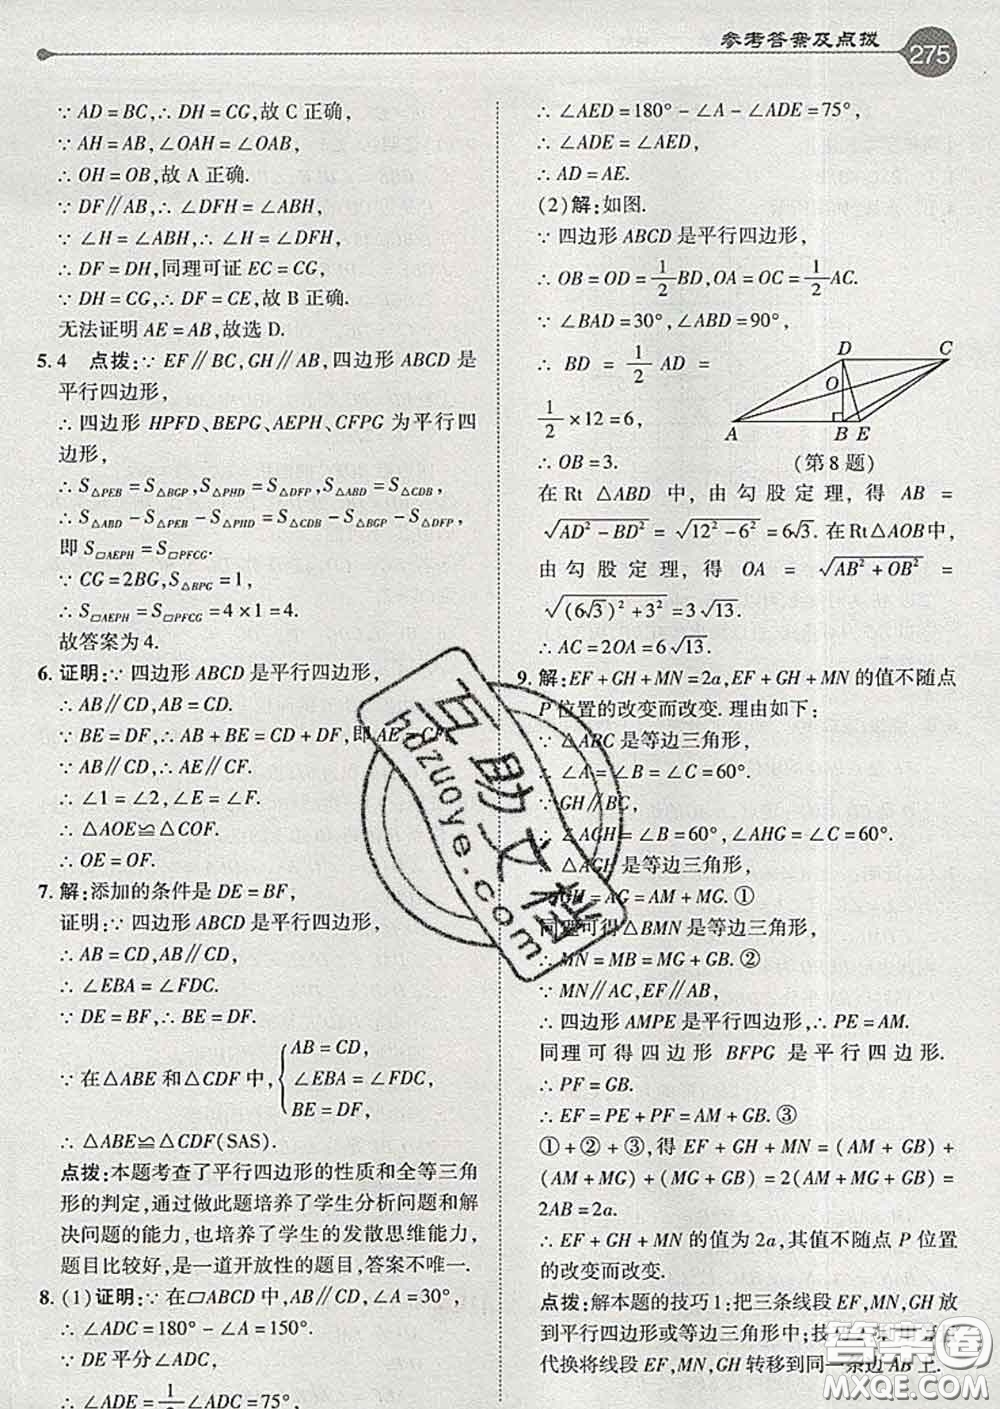 参考答案及点拨 275
∵ AD = BC,∴ DH = CG,故 C 正确.
∵ AH = AB,∠OAH = ∠OAB,
∴ OH = OB,故 A 正确.
∵ DF∥AB,∴ ∠DFH = ∠ABH,
∵ ∠H = ∠ABH,∴ ∠H = ∠DFH,
∴ DF = DH,同理可证 EC = CG.
∵ DH = CG,∴ DF = CE,故 B 正确.
无法证明 AE = AB,故选 D.
5. 4 点拨:∵ EF∥BC,GH∥AB,四边形 ABCD 是
平行四边形,
∴ 四边形 HPFD、BEPG、AEPH、CFPG 为平行四
边形,
∴ S△PEB = S△BGP,S△PHD = S△DFP,S△ABD = S△CDB,
∴ S△ABD − S△PEB − S△PHD = S△CDB − S△BGP − S△DFP,
即 S▱AEPH = S▱PFCG.
∵ CG = 2BG,S△BPG = 1,
∴ S▱AEPH = S▱PFCG = 4 × 1 = 4.
故答案为 4.
6. 证明:∵ 四边形 ABCD 是平行四边形,
∴ AB∥CD,AB = CD.
∵ BE = DF,∴ AB + BE = CD + DF,即 AE = CF.
∵ AB∥CD,∴ AE∥CF.
∴ ∠1 = ∠2,∠E = ∠F.
∴ △AOE≌△COF.
∴ OE = OF.
7. 解:添加的条件是 DE = BF,
证明:∵ 四边形 ABCD 是平行四边形,
∴ AB = CD,AB∥CD,
∴ ∠EBA = ∠FDC.
∵ DE = BF,∴ BE = DF.
∵ 在 △ABE 和 △CDF 中,{AB = CD,
∠EBA = ∠FDC,
BE = DF,
∴ △ABE≌△CDF(SAS).
点拨:本题考查了平行四边形的性质和全等三角
形的判定,通过做此题培养了学生分析问题和解
决问题的能力,也培养了学生的发散思维能力,
题目比较好,是一道开放性的题目,答案不唯一.
8. (1)证明:∵ 在▱ABCD 中,AB∥CD,∠A = 30°,
∴ ∠ADC = 180° − ∠A = 150°.
∵ DE 平分∠ADC,
∴ ∠ADE = 1/2 ∠ADC = 75°,
∴ ∠AED = 180° − ∠A − ∠ADE = 75°,
∴ ∠ADE = ∠AED,
∴ AD = AE.
(2)解:如图.
∵ 四边形 ABCD 是平行四边形,
∴ OB = OD = 1/2 BD,OA = OC = 1/2 AC.
∵ ∠BAD = 30°,∠ABD = 90°,
∴ BD = 1/2 AD =
1/2 × 12 = 6,
∴ OB = 3.
D C O A B E
(第 8 题)
在 Rt △ABD 中,由勾股定理,得 AB =
√(AD² − BD²) = √(12² − 6²) = 6√3. 在 Rt△AOB 中,
由勾股定理,得 OA = √(AB² + OB²) =
√((6√3)² + 3²) = 3√13.
∴ AC = 2OA = 6√13.
9. 解:EF + GH + MN = 2a,EF + GH + MN 的值不随点
P 位置的改变而改变. 理由如下:
∵ △ABC 是等边三角形,
∴ ∠A = ∠B = ∠C = 60°.
∵ GH∥BC,
∴ ∠AGH = ∠B = 60°,∠AHG = ∠C = 60°.
∴ △AGH 是等边三角形,
∴ GH = AG = AM + MG. ①
同理可得△BMN 是等边三角形,
∴ MN = MB = MG + GB. ②
∵ MN∥AC,EF∥AB,
∴ 四边形 AMPE 是平行四边形,∴ PE = AM.
同理可得四边形 BFPG 是平行四边形.
∴ PF = GB.
∴ EF = PE + PF = AM + GB. ③
① + ② + ③,得 EF + GH + MN = (AM + GB) +
(AM + MG) + (MG + GB) = 2(AM + MG + GB) =
2AB = 2a.
∴ EF + GH + MN 的值为 2a,其值不随点 P 位置
的改变而改变.
点拨:解本题的技巧 1:把三条线段 EF,MN,GH 放
到平行四边形或等边三角形中;技巧 2:
代换将线段 EF,MN,GH 转移到同一条边 AB 上.
互助文档
hdzuoye.com
答案圈
MXQE.COM